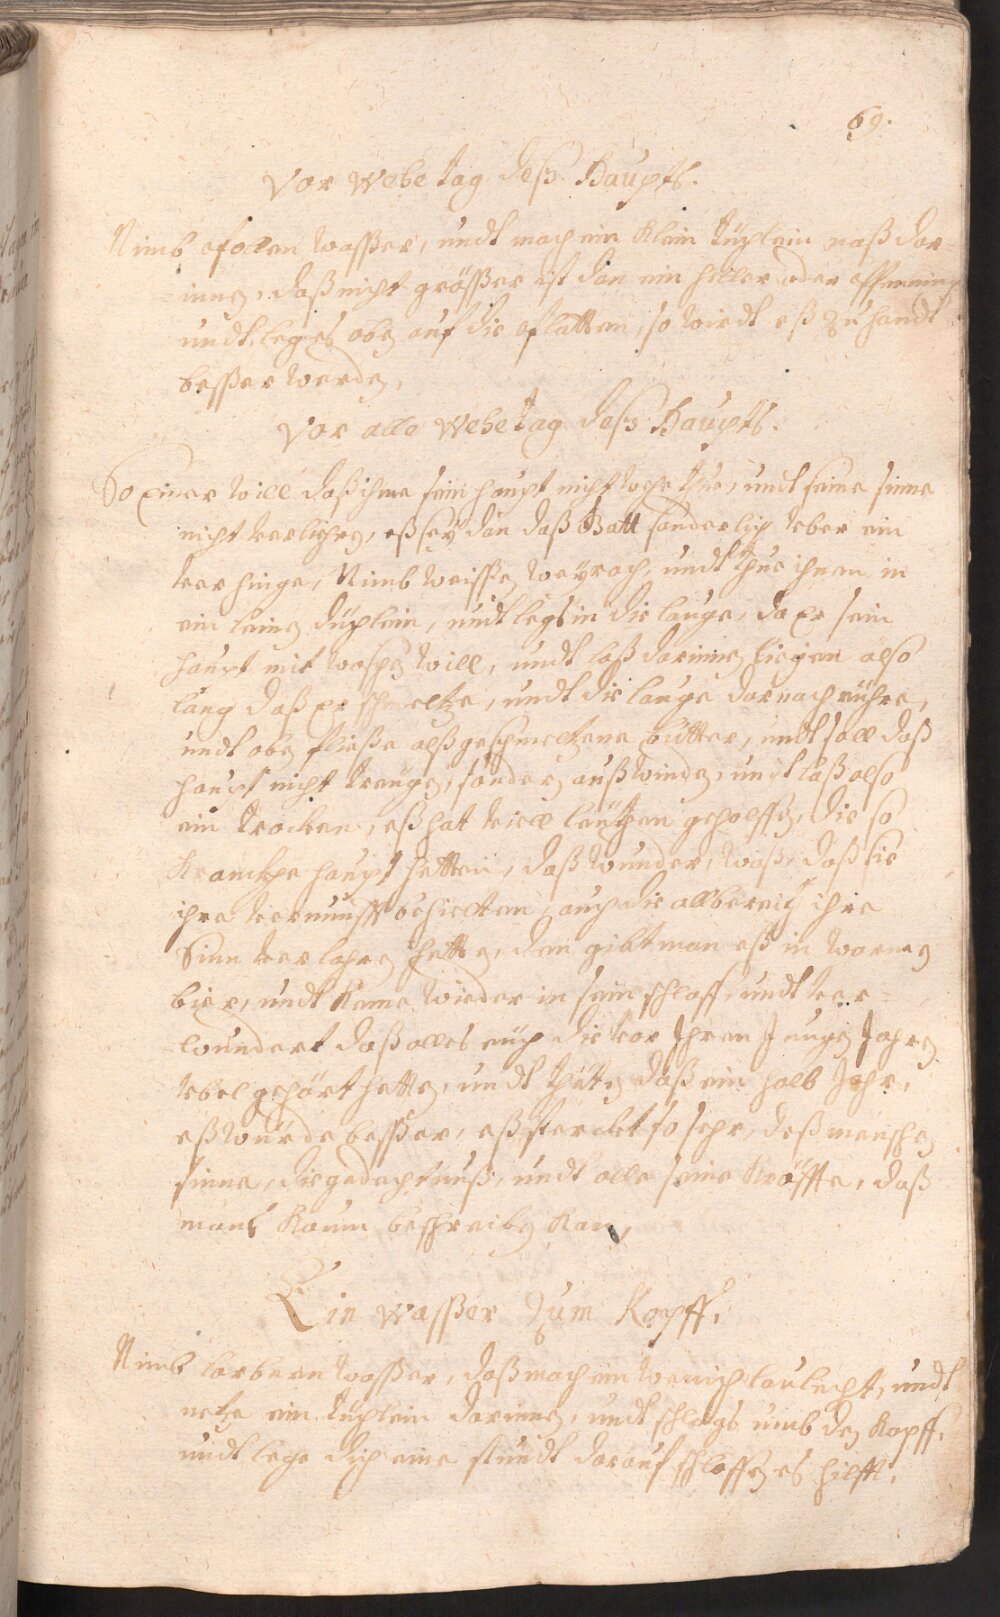 69.
Vor Wehetag deß Haupts.
Nimb Wasser, undt mach ein klein tüchlein naß dar=
innen, daß nicht grösser ist dan ein heller oder pfenning
undt leg es oben auf die platten, so wirdt eß zu handt
besser werden,
Vor alle Wehetag deß Haupts.
So einer will daß ihme sein haupt nicht wehe thue, undt seine sinne
nicht verliehren, eß sey dan daß Gott sonderlich uber ein
verhinge, Nimb weissen Weyrach, undt thue ihnen in
ein leinen düchlein, undt legs in die lauge, da er sein
haupt mit waschen will, undt laß darinnen liegen also
lang daß er schmeltze, undt die lauge darnach rühre,
undt oben fliesse alß geschmeltzene butter, undt soll daß
haupt nicht treugen, sondern außwinden, undt laß also
ein trocken, eß hat viell leuthen geholffen, die so
krancke haupt hetten, daß wunder, waß, daß sie
ihre vernunfft behielten, auch die allbereith ihre
Sinn verlohren hetten, den gibt man eß in warmen
bier, undt kame wieder in sein schlaff, undt ver=
wundert daß alles auch die vor Ihren Jungen Jahren
ubel gehört hetten, undt thäten daß ein halb Jahr,
eß würde besser, eß stercket so sehr, deß menschen
sinne, die gedechtnuß, undt alle seine kräffte, daß
mans kaum beschreiben kan,
Ein Wasser zum Kopff.
Nimb lorbern wasser, daß mach ein wenich laulecht, undt
netze ein tüchlein darinnen, undt schlags umb den Kopff,
undt lege dich eine stundt darauf schlaffen es hilfft.